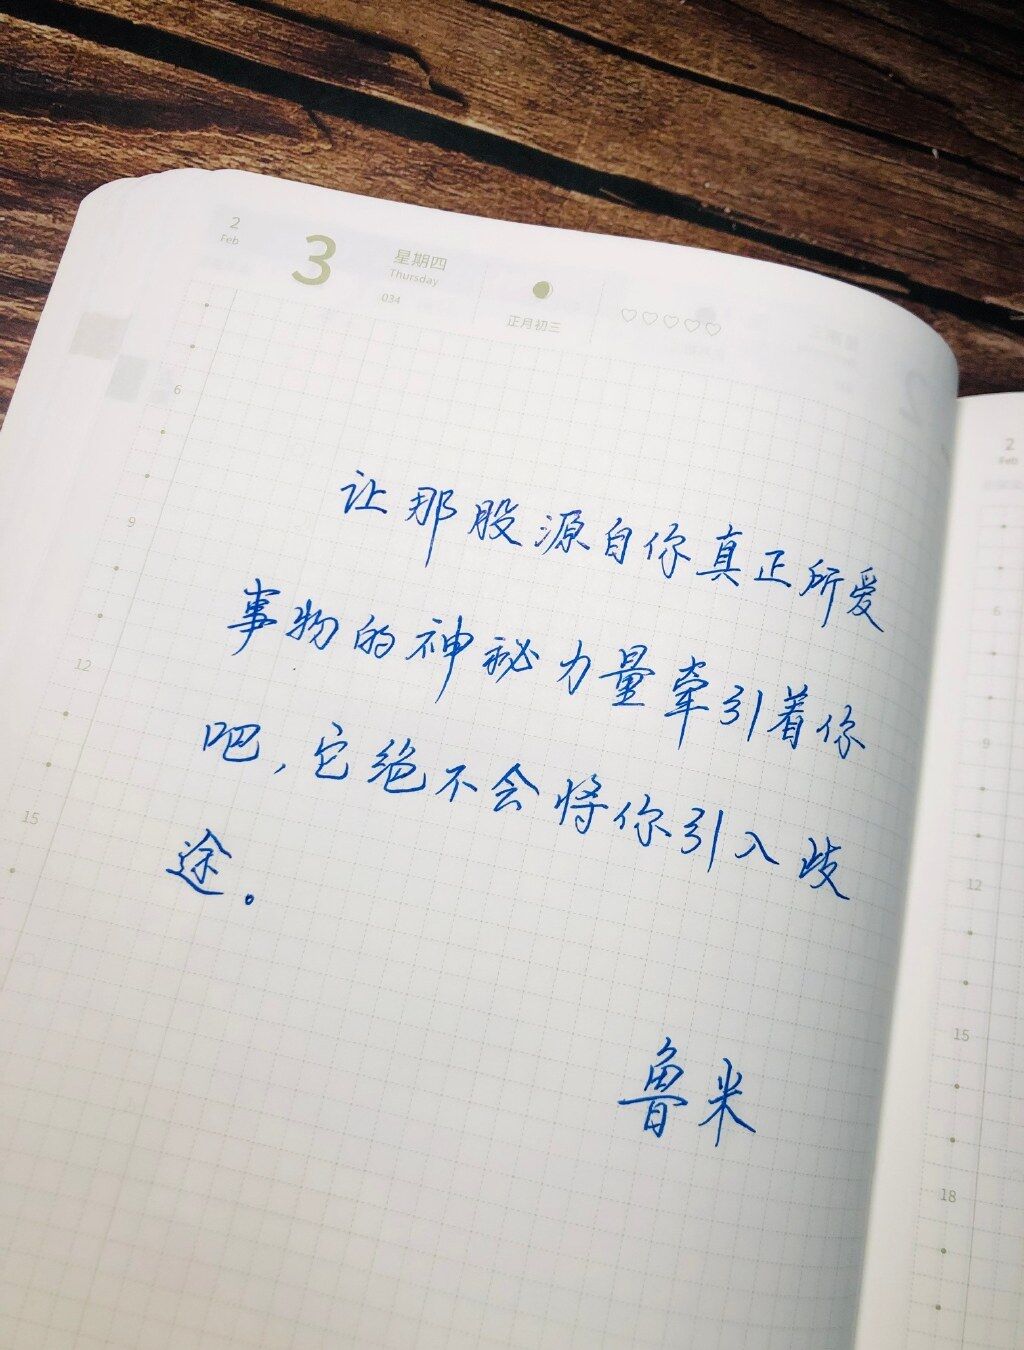 2
Feb
3
星期四
Thursday
034
正月初三
6
9
12
15
让那股源自你真正所爱
事物的神秘力量牵引着你
吧，它绝不会将你引入歧
途。
鲁米
2
Feb
6
9
12
15
18